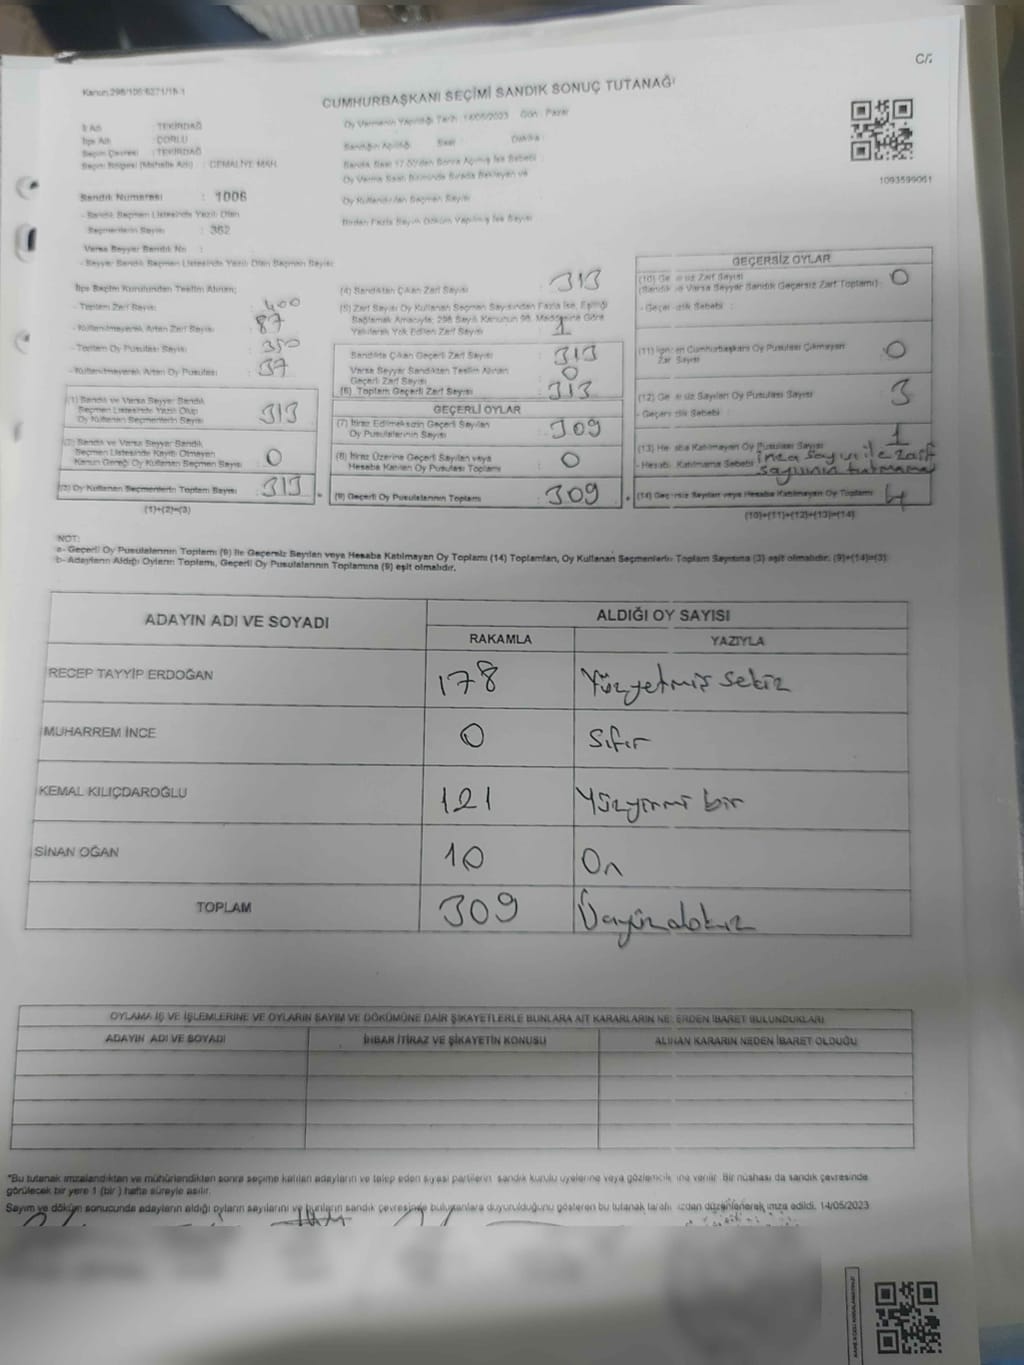 C/2
Kanun 298/106 6271/18-1
CUMHURBAŞKANI SEÇİMİ SANDIK SONUÇ TUTANAĞI
İl Adı : TEKİRDAĞ
İlçe Adı : ÇORLU
Seçim Çevresi : TEKİRDAĞ
Seçim Bölgesi (Mahalle Adı) : CEMALİYE MAH.
Oy Vermenin Yapıldığı Tarih : 14/05/2023 Gün : Pazar
Sandığın Açıldığı Saat : Dakika :
Sandık Saat 17.00'den Sonra Açılmış İse Sebebi :
Oy Verme Saati Bitiminde Sırada Bekleyen ve
Oy Kullandırılan Seçmen Sayısı
Birden Fazla Sayım Döküm Yapılmış İse Sayısı
1093599061
Sandık Numarası : 1006
- Sandık Seçmen Listesinde Yazılı Olan
Seçmenlerin Sayısı : 362
Varsa Seyyar Sandık No :
- Seyyar Sandık Seçmen Listesinde Yazılı Olan Seçmen Sayısı
İlçe Seçim Kurulundan Teslim Alınan;
- Toplam Zarf Sayısı : 400
- Kullanılmayarak Artan Zarf Sayısı : 87
- Toplam Oy Pusulası Sayısı : 350
- Kullanılmayarak Artan Oy Pusulası : 37
(1) Sandık ve Varsa Seyyar Sandık
Seçmen Listesinde Yazılı Olup
Oy Kullanan Seçmenlerin Sayısı : 313
(2) Sandık ve Varsa Seyyar Sandık
Seçmen Listesinde Kayıtlı Olmayan
Kanun Gereği Oy Kullanan Seçmen Sayısı : 0
(3) Oy Kullanan Seçmenlerin Toplam Sayısı : 313
(1)+(2)=(3)
(4) Sandıktan Çıkan Zarf Sayısı : 313
(5) Zarf Sayısı Oy Kullanan Seçmen Sayısından Fazla İse, Eşitliği
Sağlamak Amacıyla; 298 Sayılı Kanunun 98. Maddesine Göre
Yakılarak Yok Edilen Zarf Sayısı : 1
Sandıkta Çıkan Geçerli Zarf Sayısı : 313
Varsa Seyyar Sandıktan Teslim Alınan
Geçerli Zarf Sayısı : 0
(6) Toplam Geçerli Zarf Sayısı : 313
GEÇERLİ OYLAR
(7) İtiraz Edilmeksizin Geçerli Sayılan
Oy Pusulalarının Sayısı : 309
(8) İtiraz Üzerine Geçerli Sayılan veya
Hesaba Katılan Oy Pusulası Toplamı : 0
(9) Geçerli Oy Pusulalarının Toplamı : 309
GEÇERSİZ OYLAR
(10) Geçersiz Zarf Sayısı
(Sandık ve Varsa Seyyar Sandık Geçersiz Zarf Toplamı) : 0
- Geçersizlik Sebebi :
(11) İçinden Cumhurbaşkanı Oy Pusulası Çıkmayan
Zarf Sayısı : 0
(12) Geçersiz Sayılan Oy Pusulası Sayısı : 3
- Geçersizlik Sebebi :
(13) Hesaba Katılmayan Oy Pusulası Sayısı : 1
- Hesaba Katılmama Sebebi : imza sayısı ile zarf
sayısının tutmaması
(14) Geçersiz Sayılan veya Hesaba Katılmayan Oy Toplamı : 4
(10)+(11)+(12)+(13)=(14)
NOT:
a- Geçerli Oy Pusulalarının Toplamı (9) ile Geçersiz Sayılan veya Hesaba Katılmayan Oy Toplamı (14) Toplamları, Oy Kullanan Seçmenlerin Toplam Sayısına (3) eşit olmalıdır. (9)+(14)=(3)
b- Adayların Aldığı Oyların Toplamı, Geçerli Oy Pusulalarının Toplamına (9) eşit olmalıdır.
ADAYIN ADI VE SOYADI ALDIĞI OY SAYISI
RAKAMLA YAZIYLA
RECEP TAYYİP ERDOĞAN 178 Yüzyetmiş sekiz
MUHARREM İNCE 0 Sıfır
KEMAL KILIÇDAROĞLU 121 Yüzyirmi bir
SİNAN OĞAN 10 On
TOPLAM 309 Üçyüzdokuz
OYLAMA İŞ VE İŞLEMLERİNE VE OYLARIN SAYIM VE DÖKÜMÜNE DAİR ŞİKAYETLERLE BUNLARA AİT KARARLARIN NELERDEN İBARET BULUNDUKLARI
ADAYIN ADI VE SOYADI İHBAR İTİRAZ VE ŞİKAYETİN KONUSU ALINAN KARARIN NEDEN İBARET OLDUĞU
*Bu tutanak imzalandıktan ve mühürlendikten sonra seçime katılan adayların ve talep eden siyasi partilerin sandık kurulu üyelerine veya gözlemcilerine verilir. Bir nüshası da sandık çevresinde
görülecek bir yere 1 (bir) hafta süreyle asılır.
Sayım ve döküm sonucunda adayların aldığı oyların sayılarını ve bunların sandık çevresinde bulunanlara duyurulduğunu gösteren bu tutanak tarafımızdan düzenlenerek imza edildi. 14/05/2023